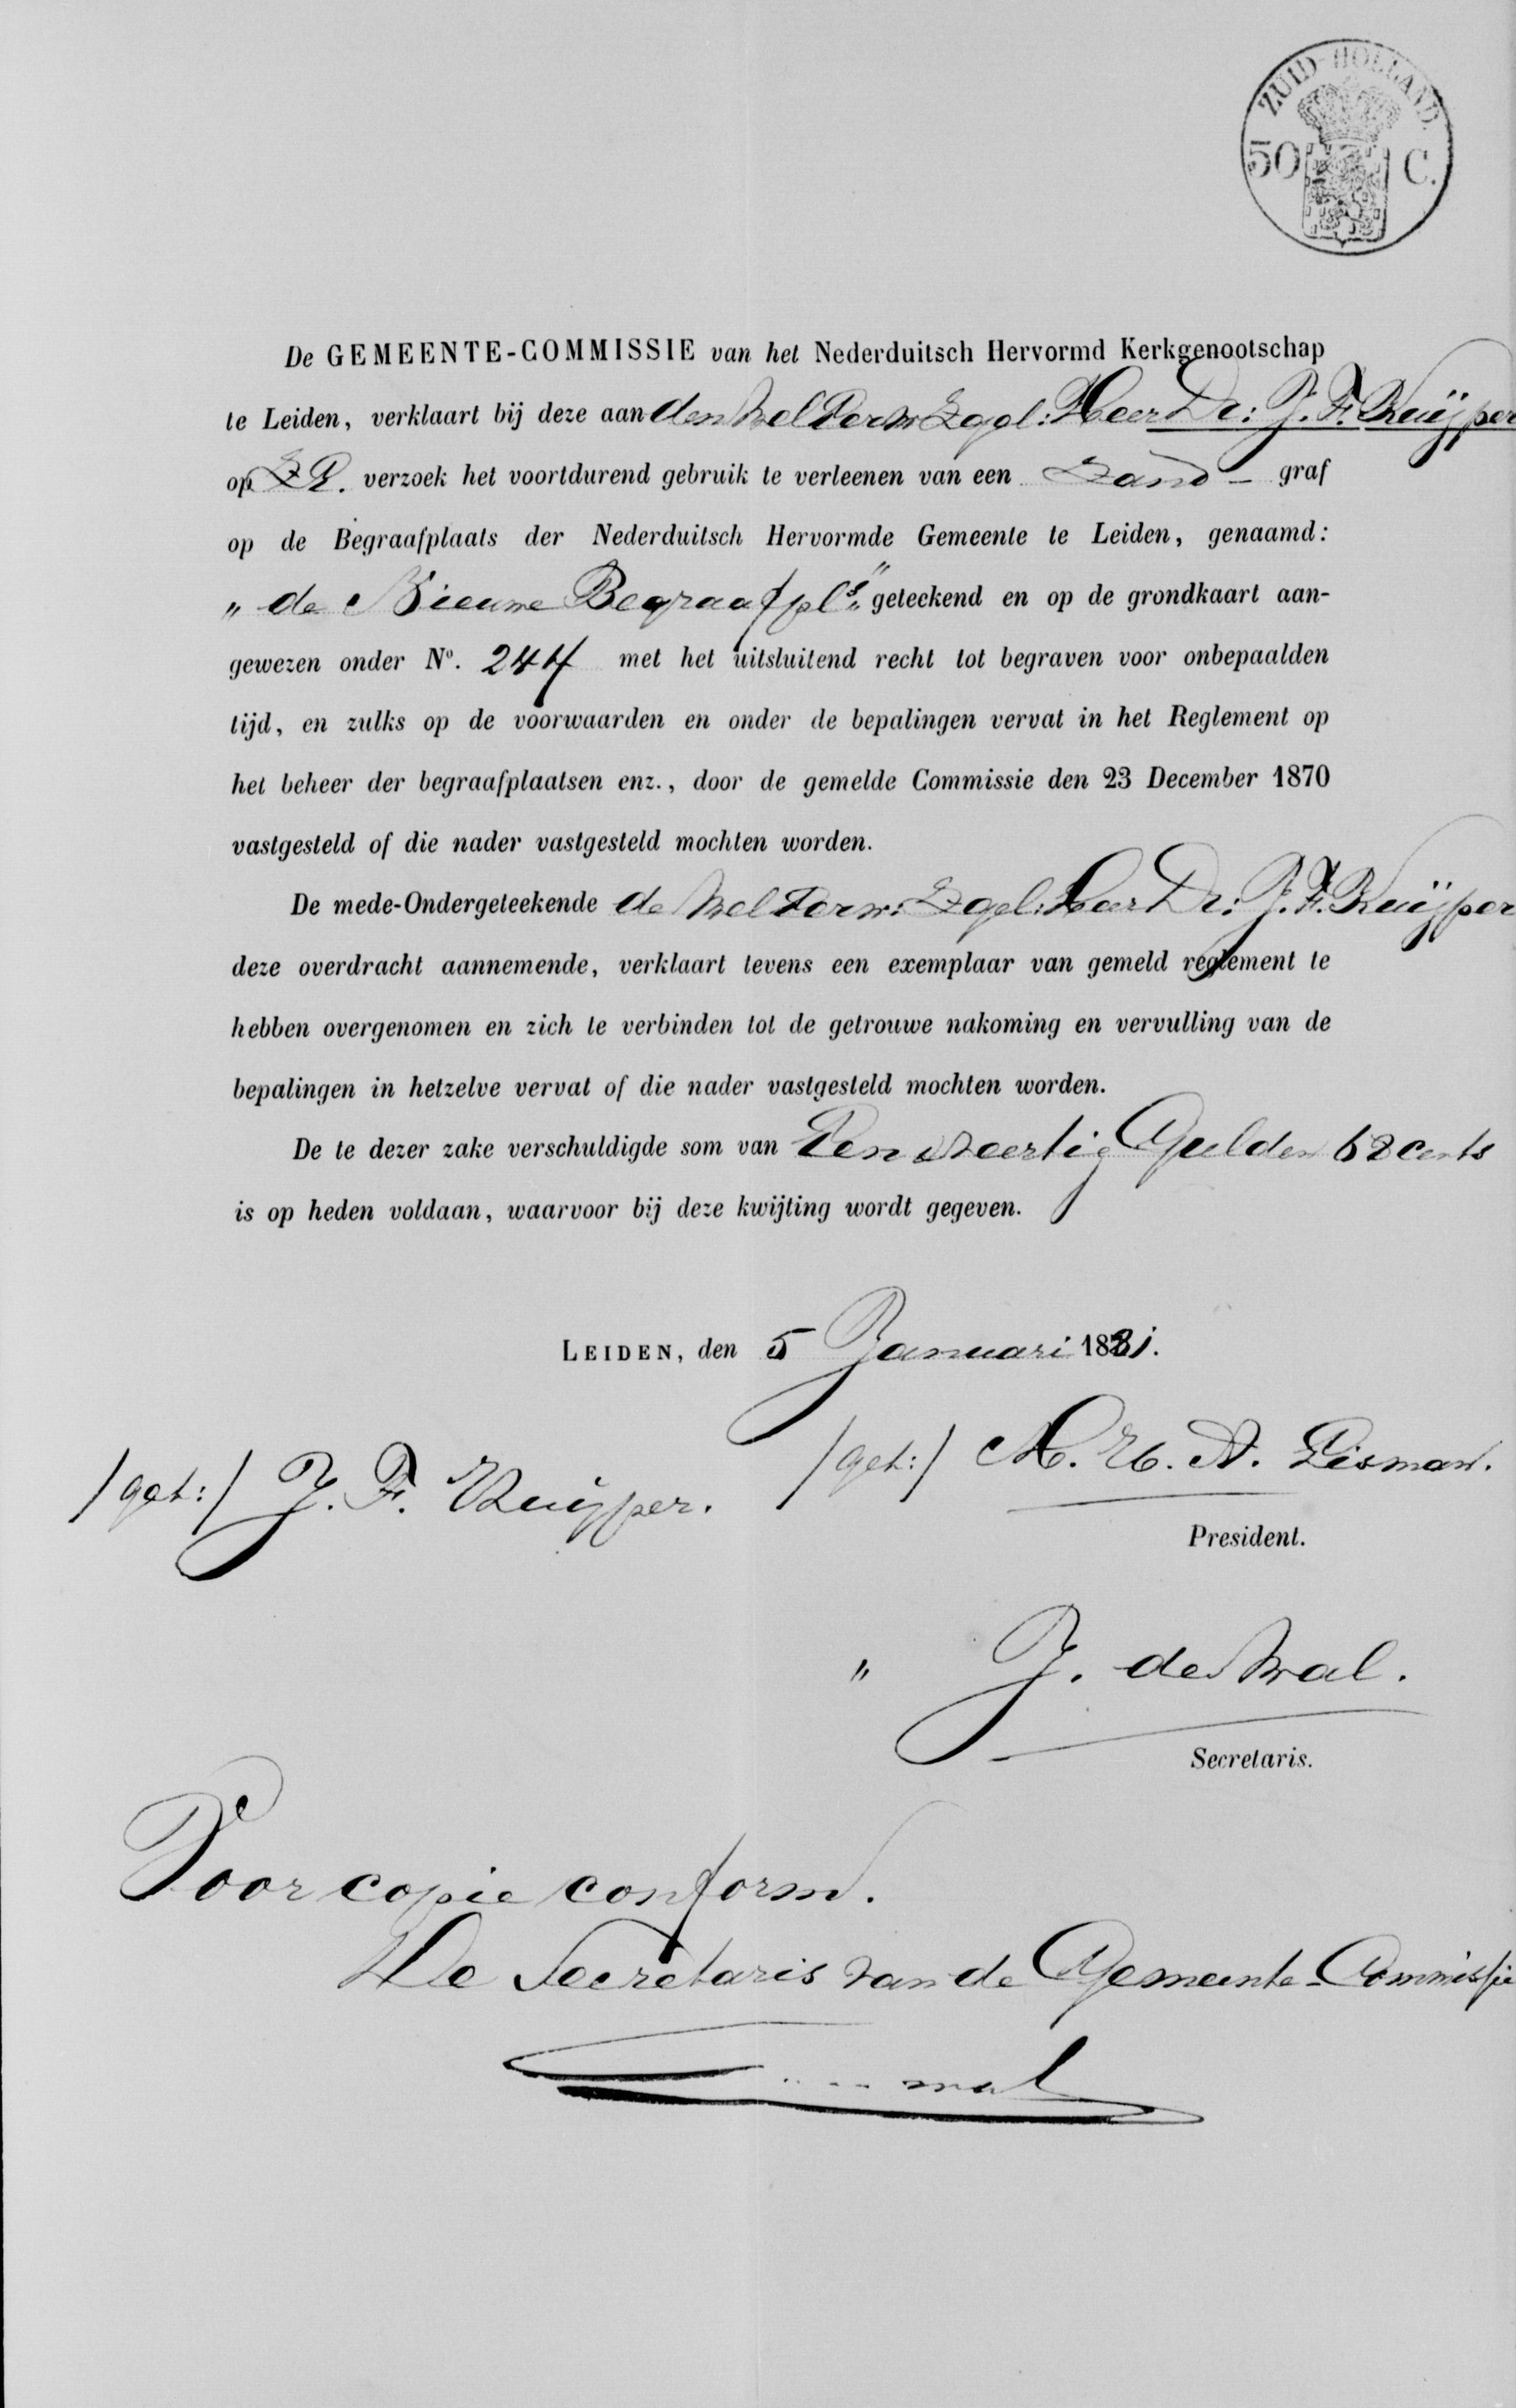 ZUID-HOLLAND.
50 C.
De GEMEENTE-COMMISSIE van het Nederduitsch Hervormd Kerkgenootschap
te Leiden, verklaart bij deze aan den Wel Eerw. Zgel: Heer Dr: J. F. Kuijper
op ZE. verzoek het voortdurend gebruik te verleenen van een Zand- graf
op de Begraafplaats der Nederduitsch Hervormde Gemeente te Leiden, genaamd:
„ de Nieuwe Begraafpls" geteekend en op de grondkaart aan-
gewezen onder No. 244 met het uitsluitend recht tot begraven voor onbepaalden
tijd, en zulks op de voorwaarden en onder de bepalingen vervat in het Reglement op
het beheer der begraafplaatsen enz., door de gemelde Commissie den 23 December 1870
vastgesteld of die nader vastgesteld mochten worden.
De mede-Ondergeteekende de Wel Eerw: Zgel: Heer Dr: J. F. Kuijper
deze overdracht aannemende, verklaart tevens een exemplaar van gemeld reglement te
hebben overgenomen en zich te verbinden tot de getrouwe nakoming en vervulling van de
bepalingen in hetzelve vervat of die nader vastgesteld mochten worden.
De te dezer zake verschuldigde som van Een & Veertig Gulden 68 cents
is op heden voldaan, waarvoor bij deze kwijting wordt gegeven.
LEIDEN, den 5 Januari 1881.
/get:/ J. F. Kuijper. /get:/ M. H. A. Eisman.
President.
" J. de Wal.
Secretaris.
Voor copie conform.
De Secretaris van de Gemeente-Commissie